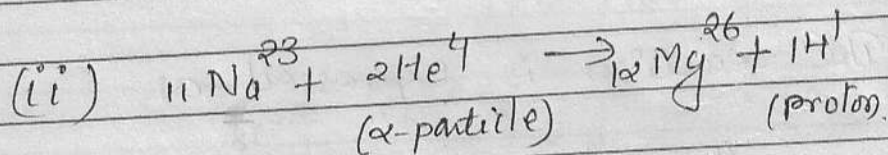 (ii) 11Na²³ + 2He⁴ → 12Mg²⁶ + 1H¹
(α-particle) (proton)